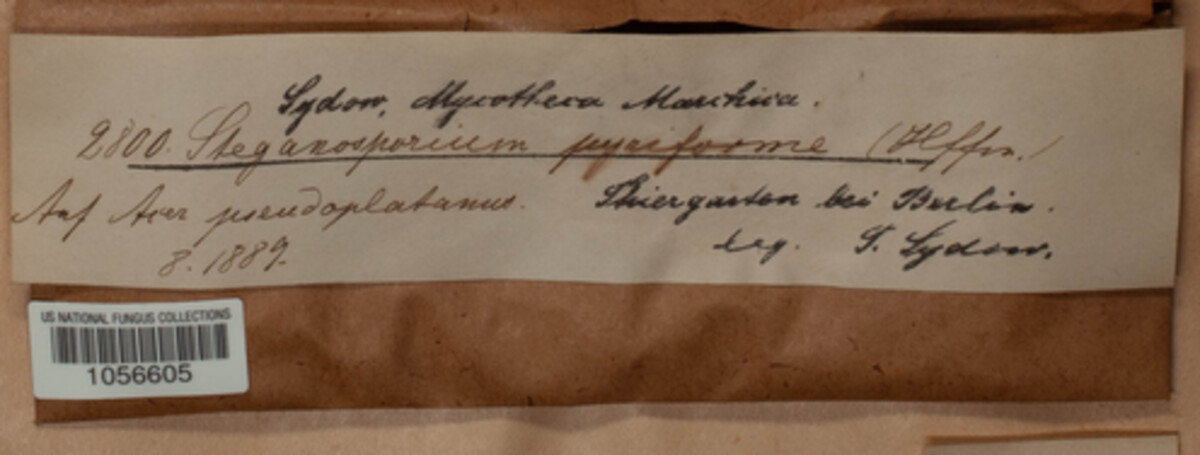 Sydow, Mycotheca Marchica.
2800. Steganosporium pyriforme (Hffm.)
Auf Acer pseudoplatanus. Thiergarten bei Berlin.
8. 1889. leg. P. Sydow.
US NATIONAL FUNGUS COLLECTIONS
1056605